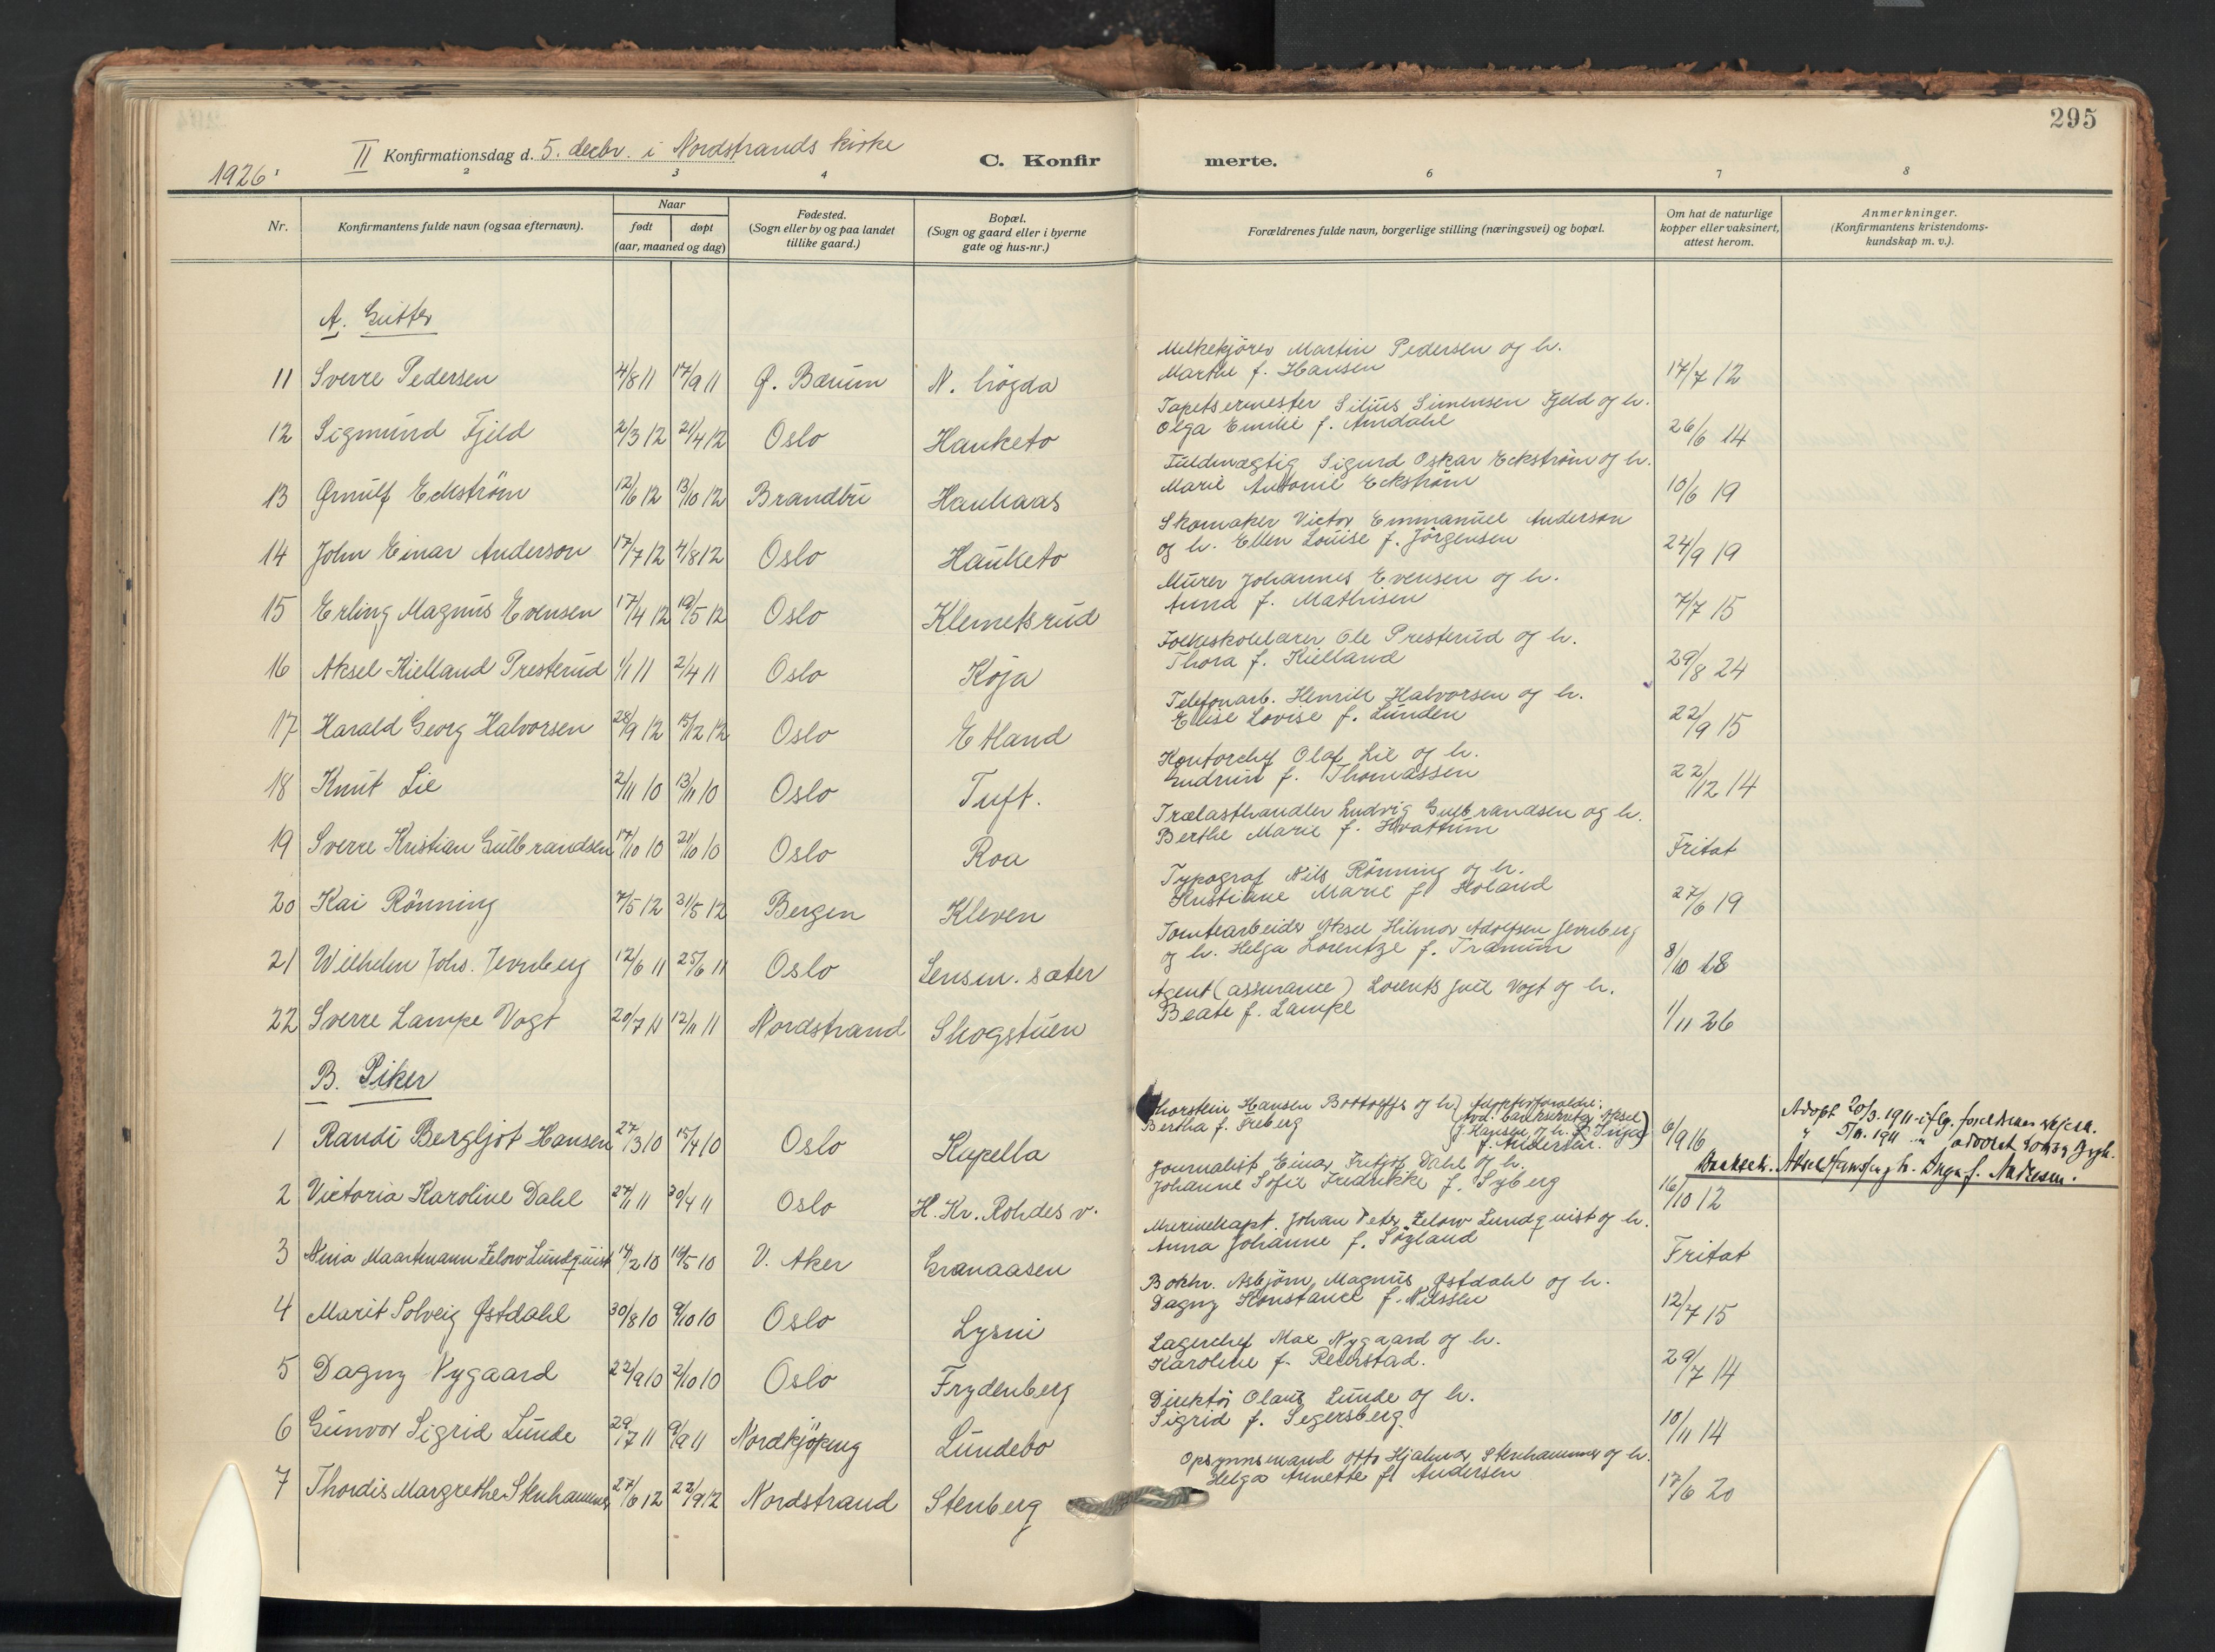 295
1926
II Konfirmationsdag d. 5. decbr. i Nordstrands kirke
C. Konfirmerte.
1 2 3 4 6 7 8
Nr.
Konfirmantens fulde navn (ogsaa efternavn).
Naar
født døpt
(aar, maaned og dag)
Fødested.
(Sogn eller by og paa landet
tillike gaard.)
Bopæl.
(Sogn og gaard eller i byerne
gate og hus-nr.)
Forældrenes fulde navn, borgerlige stilling (næringsvei) og bopæl.
Om hat de naturlige
kopper eller vaksinert,
attest herom.
Anmerkninger.
(Konfirmantens kristendoms-
kundskap m. v.).
A. Gutter
Melkekjører Martin Pedersen og h.
11 Sverre Pedersen 4/8 11 17/9 11 Ø. Bærum N. Høgda Marthe f. Hansen 17/7 12
Tapetsermester Silius Simensen Fjeld og h.
12 Sigmund Fjeld 2/3 12 21/4 12 Oslo Hauketo Olga Emilie f. Amdahl 26/6 14
Fuldmægtig Sigurd Oskar Eckstrøm og h.
13 Ørnulf Eckström 12/6 12 13/10 12 Brandbu Haukaas Marie Antonie Eckstrøm 10/6 19
Skomaker Victor Emmanuel Anderson
14 John Einar Anderson 17/7 12 4/8 12 Oslo Hauketo og h. Ellen Louise f. Jörgensen 24/9 19
Murer Johannes Evensen og h.
15 Erling Magnus Evensen 17/4 12 19/5 12 Oslo Klemetsrud Anna f. Mathisen 7/7 15
Folkeskolelærer Ole Presterud og h.
16 Aksel Kielland Presterud 1/1 11 2/4 11 Oslo Koja Thora f. Kielland 29/8 24
Telefonarb. Henrik Halvorsen og h.
17 Harald Georg Halvorsen 28/9 12 15/12 12 Oslo Etland Elise Lovise f. Lunden 22/9 15
Kontorchef Olaf Lie og h.
18 Knut Lie 2/11 10 13/11 10 Oslo Tuft. Gudrun f. Thomassen 22/12 14
Trælasthandler Ludvig Gulbrandsen og h.
19 Sverre Kristian Gulbrandsen 17/10 10 21/10 10 Oslo Roa Berthe Marie f. Hvattum Fritat
Typograf Nils Rönning og h.
20 Kai Rönning 7/5 12 31/5 12 Bergen Kleven Kristiane Marie f. Holand 27/6 19
Tomtearbeider Aksel Hilmar Adolfsen Jernberg
21 Wilhelm Johs. Jernberg 12/6 11 25/6 11 Oslo Lensm. sæter og h. Helga Lorentze f. Tranum 8/10 18
Agent (assurance) Lorents Juel Vogt og h.
22 Sverre Lampe Vogt 20/7 11 12/11 11 Nordstrand Skogstuen Beate f. Lampe 1/11 26
B. Piker
Thorstein Hansen og h. Adoptivforældre:
1 Randi Bergljot Hansen 27/3 10 15/4 10 Oslo Kapella Bertha f. Freberg J. Hansen og h. Inga f. Andersen. 6/9 16
Adopt. 20/3. 1911
5/11. 1911
Aksel Hansen og h. Inga f. Andresen.
Journalist Einar Fritjof Dahl og h.
2 Victoria Karoline Dahl 27/1 11 30/4 11 Oslo H. Kr. Rohdes v. Johanne Sofie Fredrikke f. Syberg 16/10 12
Marinekapt. Johan Peter Zelow Lundquist og h.
3 Nina Maartmann Zelow Lundquist 14/2 10 16/5 10 V. Aker Granaasen Anna Johanne f. Sögland Fritat
Bokh. Asbjörn Magnus Østdahl og h.
4 Marit Solveig Østdahl 30/8 10 9/10 10 Oslo Lysni Dagny Konstance f. Nilssen 12/7 15
Lagerchef Max Nygaard og h.
5 Dagny Nygaard 22/9 10 2/10 10 Oslo Frydenberg Karoline f. Reierstad. 29/7 14
Direktör Olaus Lunde og h.
6 Gunvor Sigrid Lunde 29/7 11 9/9 11 Nordkjöping Lundebo Sigrid f. Segersberg. 10/11 14
Opsynsmand Otto Hjalmar Stenhammer og h.
7 Thordis Margrethe Stenhammer 27/6 12 22/9 12 Nordstrand Stenberg Helga Annette f. Andersen 17/6 20